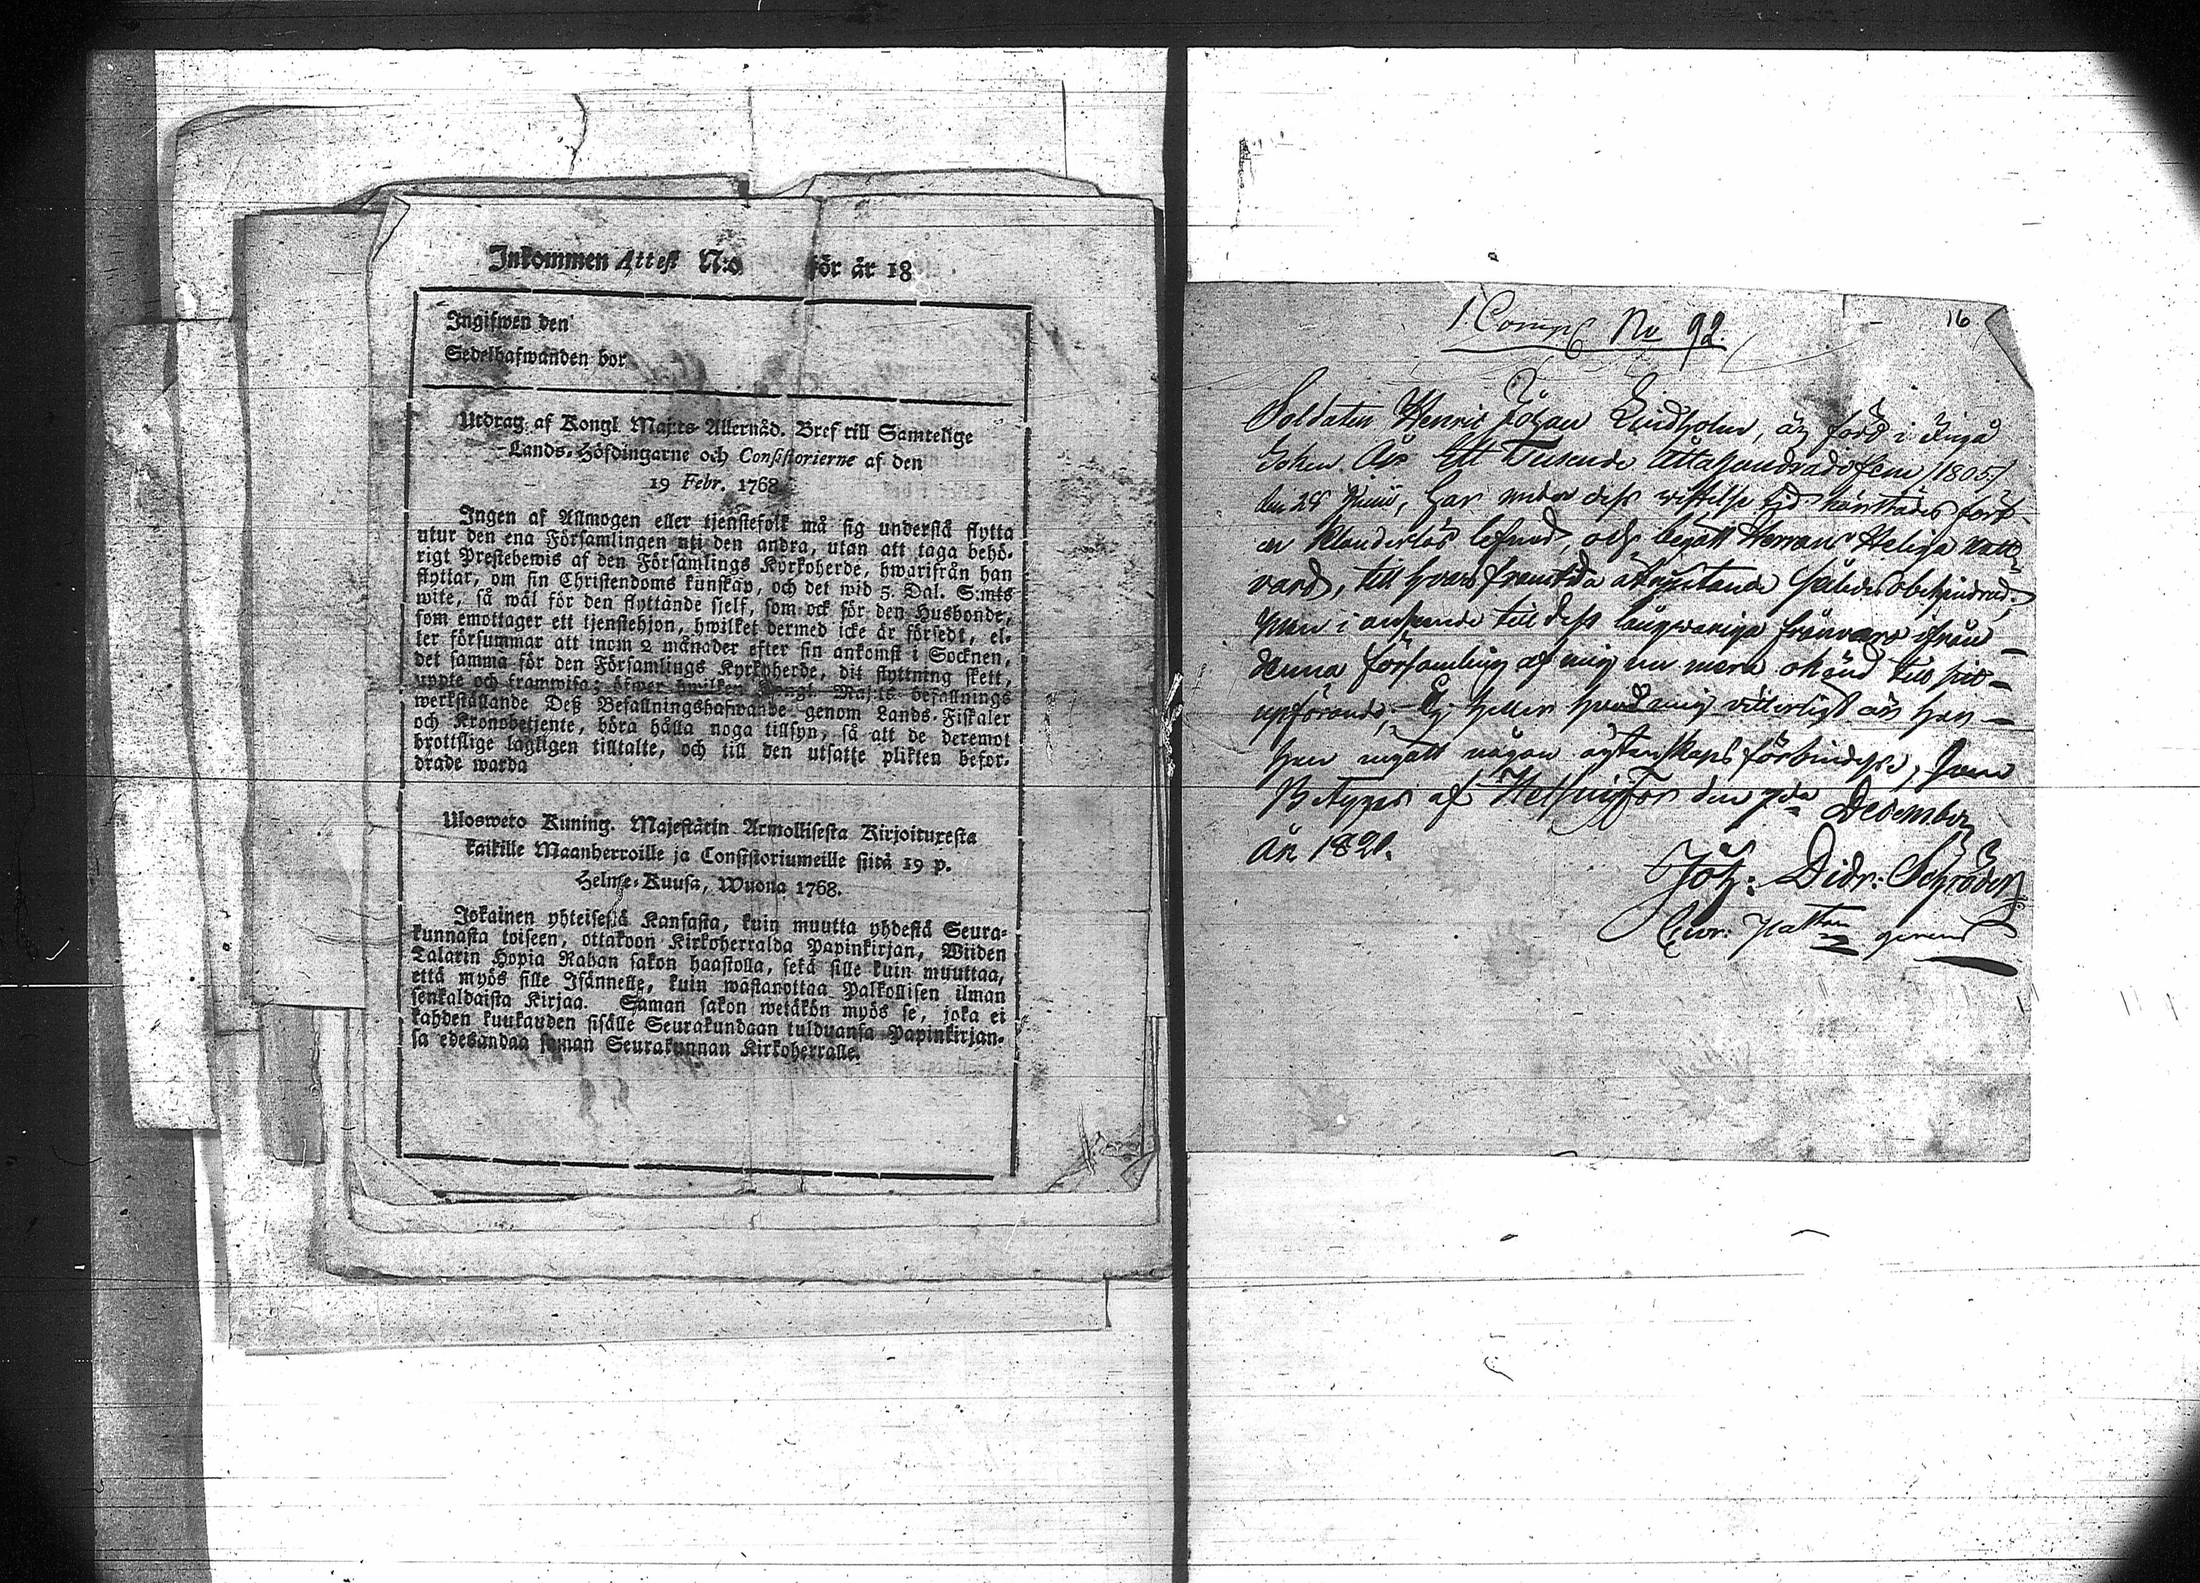 Inkommen Attest N:o för år 18
Ingifwen den
Sedelhafwanden bor
Utdrag af Kongl Maj:ts Allernåd. Bref till Samtelige
Lands-Höfdingarne och Consistorierne af den
19 Febr. 1768
Ingen af Allmogen eller tjenstefolk må sig understå flytta
utur den ena Församlingen uti den andra, utan att taga behö-
rigt Prestebewis af den Församlings Kyrkoherde, hwarifrån han
flyttar, om sin Christendoms kunskap, och det wid 5 Dal. S:mts
wite, så wäl för den flyttande sjelf, som ock för den Husbonde,
som emottager ett tjenstehjon, hwilket dermed icke är försedt, el-
ler försummar att inom 2 månader efter sin ankomst i Socknen,
det samma för den Församlings Kyrkoherde, dit flyttning skett,
uppte och framwisa; öfwer hwilken Kongl Maj:ts befallnings
werkställande Deß Befallningshafwande genom Lands-Fiskaler
och Kronobetjente, böra hålla noga tillsyn, så att de deremot
brottslige lagligen tilltalte, och till den utsatte plikten befor-
drade warda
Ulosweto Kuning. Majestätin Armollisesta Kirjoituxesta
kaikille Maanherroille ja Consistoriumeille siitä 19 p.
Helme-Kuusa, Wuona 1768.
Jokainen yhteisestä Kansasta, kuin muutta yhdestä Seura-
kunnasta toiseen, ottakoon Kirkoherralda Papinkirjan, Wiiden
Talarin Hopia Rahan sakon haastolla, sekä sille kuin muuttaa,
että myös sille Isännelle, kuin wastanottaa Palkollisen ilman
senkaldaista Kirjaa. Saman sakon wetäkön myös se, joka ei
kahden kuukauden sisälle Seurakundaan tulduansa Papinkirjan-
sa edesandaa saman Seurakunnan Kirkoherralle.
16
1. Comp No 92.
Soldaten Henric Johan Lindholm, är född i Ingå
Soken År Ett Tusende Åttahundrade fem /1805/
den 28 Junii, har under dess wistelse tid härstädes fört
en klanderlös lefnad, och begått Herrans Heliga Natt-
vard, till hvars framtida åtnjutande således obehindrad;
men i anseende till dess långwariga frånvaro ifrån
denna församling af mig nu mera okänd till sitt
uppförande, Ej heller hvad mig vitterligt är har
han ingått någon äktenskaps förbindelse, som
Betygas af Helsingfors den 7de December
År 1821.
Joh: Didr: Schröder